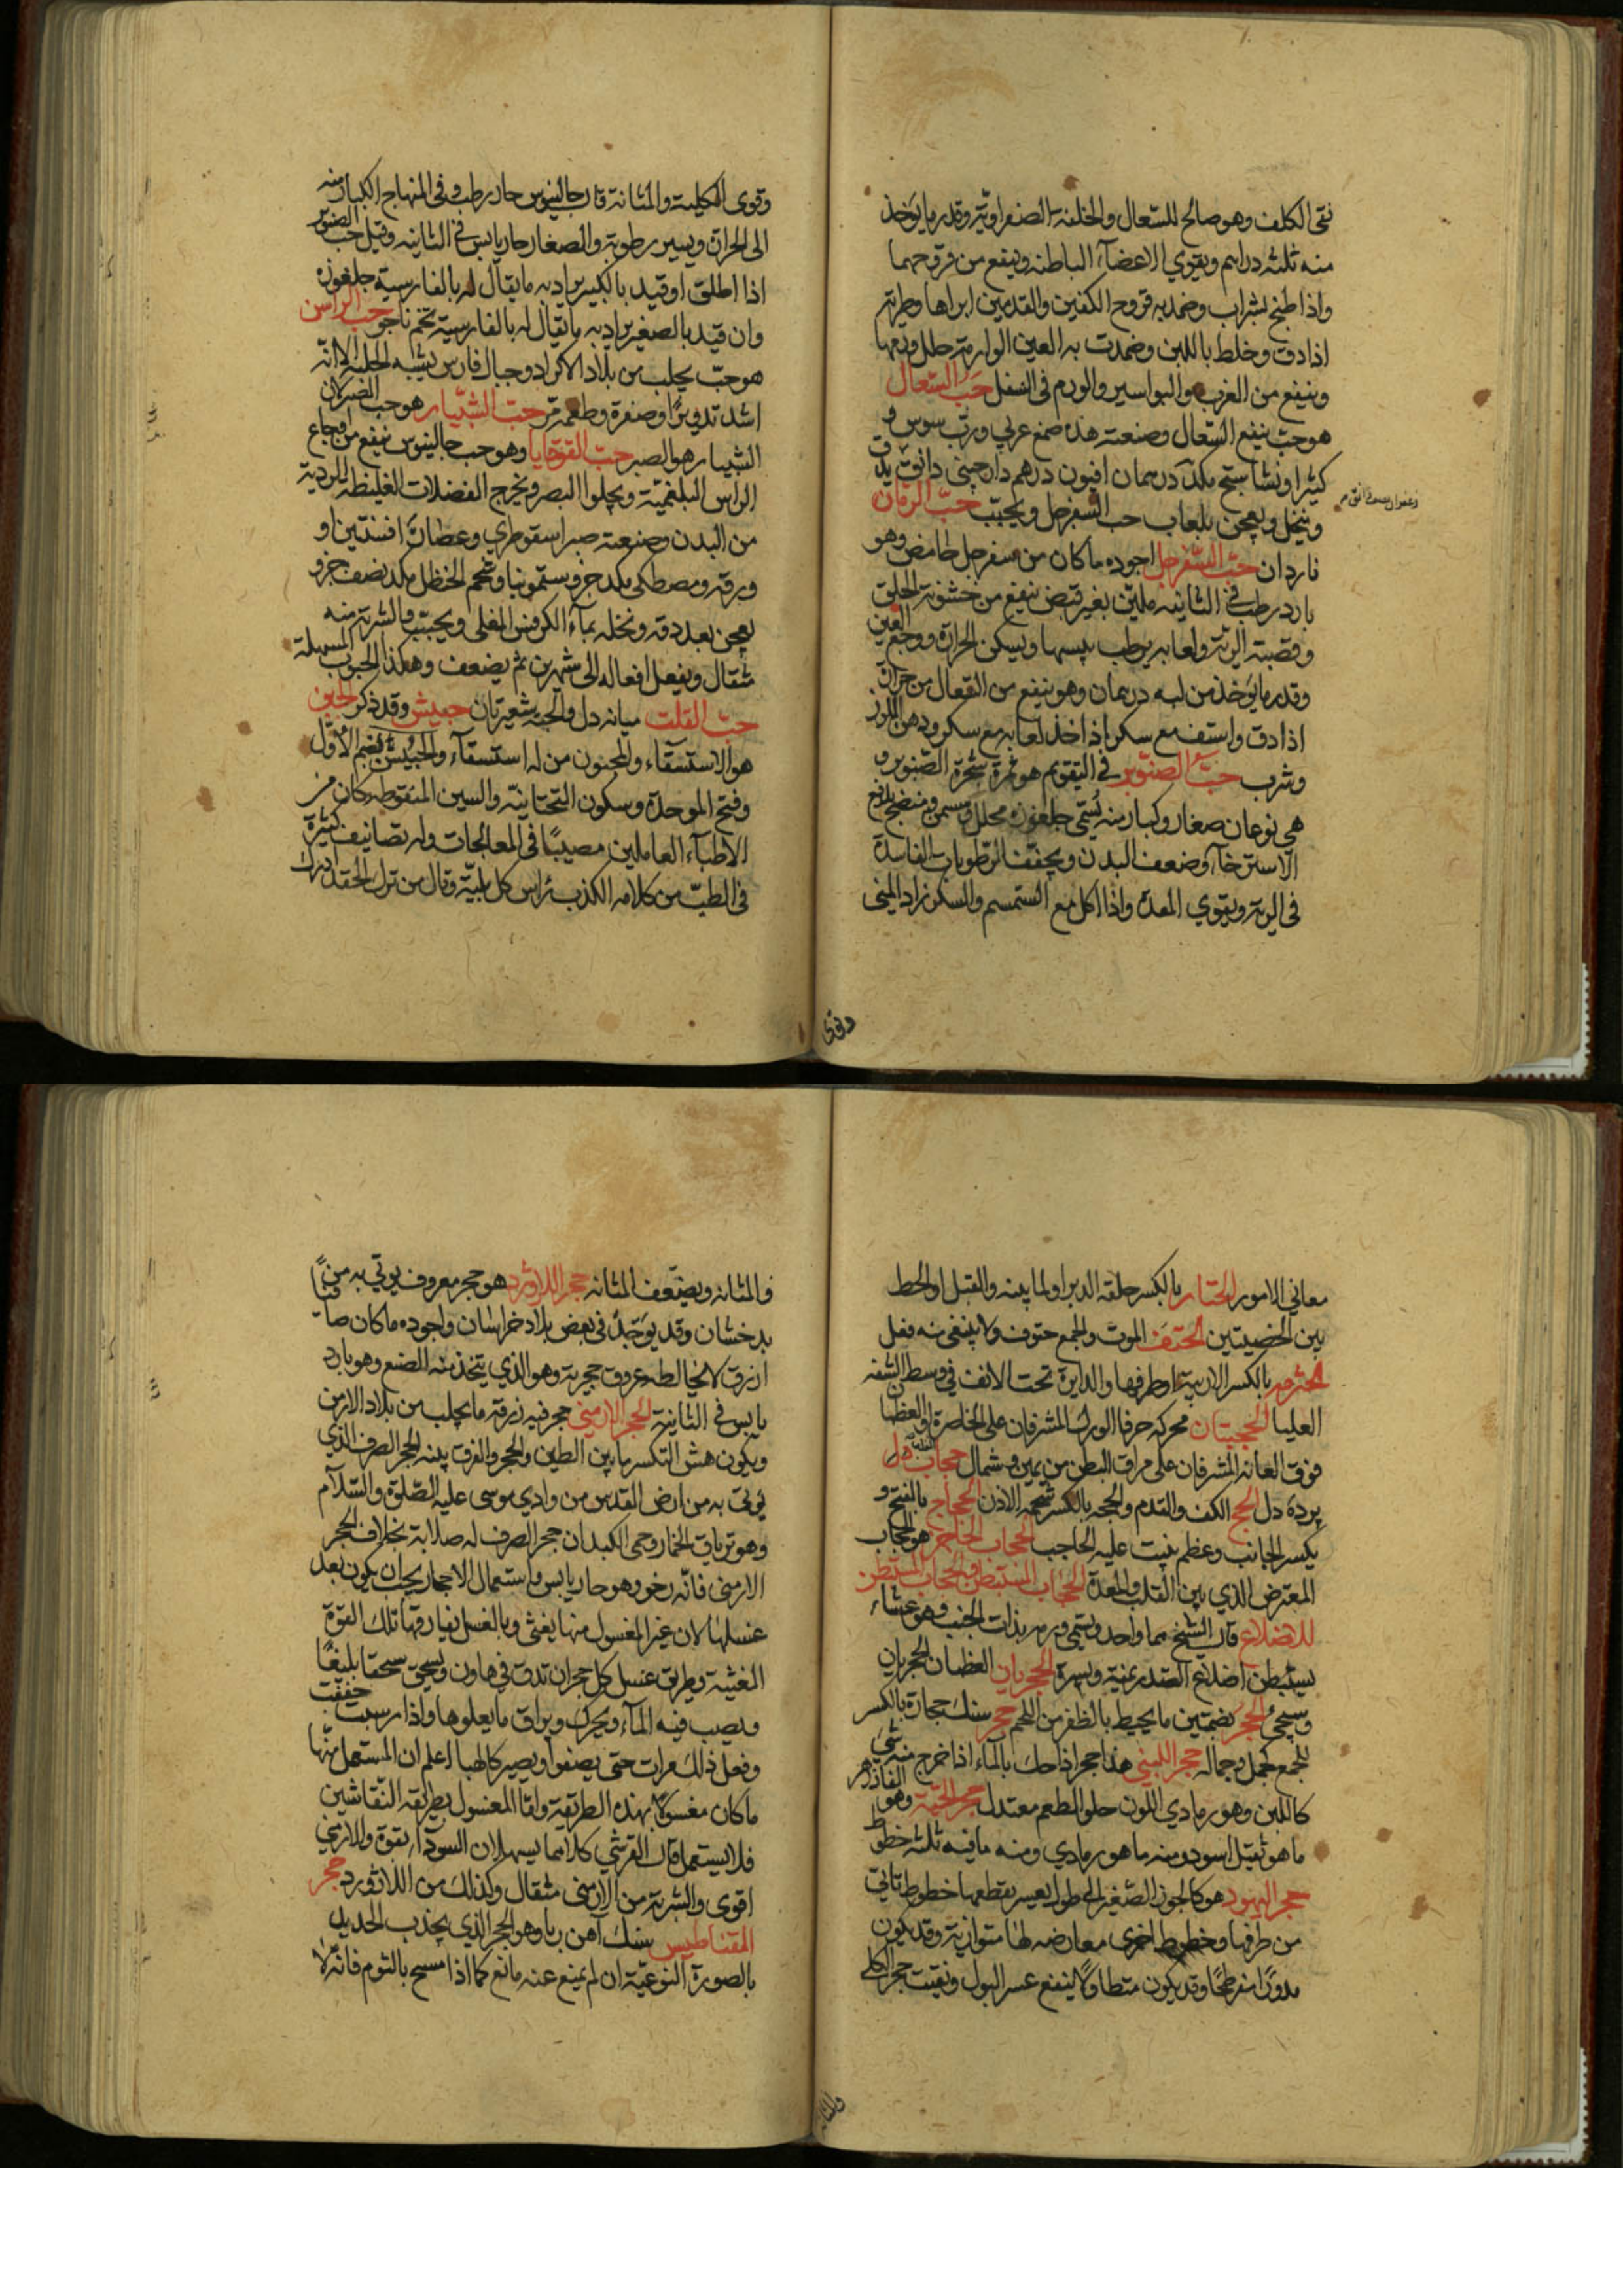 نقى الكلف وهو صالح للسعال والخلفة الصفراوية وقدر ما يؤخذ
منه ثلثة دراهم ويقوي الاعضاء الباطنة وينفع من قروحها
واذا طبخ بشراب وضمد به قروح الكفين والقدمين ابراها وطريه
اذا دق وخلط باللبن وضمدت به العين الوارمة حلل ورمها
وينفع من الغرب والبواسير والورم فى السفل حب السعال
هو حب ينفع السعال وصنعته هذه صمغ عربي ورب سوس و
كثيرا ونشاستج مكد درهمان افيون درهم دارچيني دانق يدق
وينخل ويعجن بلعاب حب السفرجل ويحبب حب الرمان
ناردان حب السفرجل اجوده ما كان من سفرجل حامض وهو
بارد رطب فى الثانية ملين بغير قبض ينفع من خشونة الحلق
وقصبة الرية ولعابه يرطب يبسها ويسكن الحرارة ووجع العين
وقدر ما يؤخذ من لبه درهمان وهو ينفع من السعال من حرارة
اذا دق واستف مع سكر اذا اخذ لعابه مع سكر ودهن اللوز
وشرب حب الصنوبر فى التقويم هو ثمرة شجرة الصنوبر و
هي نوعان صغار وكبار منه يسمى جلغوزه محلل ومسمن ومنضج يدفع
الاسترخاء وضعف البدن ويجفف الرطوبات الفاسدة
فى الرية ويقوي المعدة واذا اكل مع السمسم والسكر زاد المنى
وقوى
وقوى الكلية والمثانة قال جالينوس حار رطب وفى المنهاج الكبار منه
الى الحرارة ويسير رطوبة والصغار حار يابس فى الثانية وقيل حب الصنوبر
اذا اطلق او قيد بالكبير يراد به ما يقال له بالفارسية جلغوزه
وان قيد بالصغير يراد به ما يقال له بالفارسية تخم ناجو حب الراسن
هو حب يجلب من بلاد الاكراد وجبال فارس يشبه الحلبة الا انه
اشد تدويرا وصفرة وطعمه مر حب الشبيار هو حب الصبر لان
الشبيار هو الصبر حب القوقايا وهو حب جالينوس ينفع من اوجاع
الراس البلغمية ويجلوا البصر ويخرج الفضلات الغليظة الردية
من البدن وصنعته صبر اسقوطري وعصارة افسنتين او
ورقه ومصطكى مكد جزو سقمونيا وشحم الحنظل مكد نصف جزو
يعجن بعد دقه ونخله بماء الكرفس المغلى ويحبب والشربة منه
مثقال ويفعل افعاله الى شهرين ثم يضعف وهكذا الحبوب المسهلة
حب القلت ميانه دل والحبة شعيرتان حبيش وقد ذكر الحبن
هو الاستسقاء والمحبنون من له استسقاء والحبيش بضم الاول
وفتح الموحدة وسكون التحتانية والسين المنقوطة كان من
الاطباء العاملين مصيبا فى المعالجات وله تصانيف كثيرة
فى الطب من كلامه الكذب راس كل بلية وقال من ترك الحقد ادرك
معاني الامور الحتار بالكسر حلقة الدبر او لما بينه والقبل او الخط
بين الخصيتين الحتف الموت والجمع حتوف ولا يبنى منه فعل
الحثرمة بالكسر الارنبة او طرفها والدايرة تحت الانف فى وسط الشفة
العليا الحجبتان محركة حرفا الورك المشرفان على الخاصرة او العظمان
فوق العانة المشرفان على مراق البطن من يمين وشمال حجاب القلب دل
پردۀ دل الحج الكف والقدم والحجة بالكسر شحمة الاذن الحجاج بالفتح و
يكسر الجانب وعظم ينبت عليه الحاجب الحجاب الحاجز هو الحجاب
المعترض الذي بين القلب والمعدة الحجاب المستبطن والحجاب المستبطن
للاضلاع قال الشيخ هما واحد ويسمى ورمه بذات الجنب وهو غشاء
يستبطن اضلاع الصدر يمنة ويسرة الحجريان العظمان الحجريان
وسيجئ الحجر بضمتين ما يحيط بالظفر من اللحم حجر سنك حجارة بالكسر
للجمع كجمل وجمالة حجر اللبني هذا حجر اذا حك بالماء اذا خرج منه شئ
كاللبن وهو رمادي اللون حلو الطعم معتدل حجر الحية وهو الفاذزهر
ما هو ثقيل اسود ومنه ما هو رمادي ومنه ما فيه ثلثة خطوط
حجر اليهود هو كالجوز الصغير الى طول يسير يقطعها خطوط تاتي
من طرفها وخطوط اخرى معارضة لها متوازية وقد يكون
مدورا مفرطحا وقد يكون متطاولا ينفع عسر البول ويفتت حجر الكلى
والمثانة
والمثانة ويضعف المثانة حجر اللاژورد هو حجر معروف يوتى به من
بدخشان وقد يوجد فى بعض بلاد خراسان واجوده ما كان صافيا
ازرق لا يخالطه عروق حجرية وهو الذي يتخذ منه الصبغ وهو بارد
يابس فى الثانية الحجر الارمني حجر فيه زرقة ما يجلب من بلاد الارمن
ويكون هش التكسر ما بين الطين والحجر والفرق بينه الحجر الصرف الذي
يوتى به من ارض القدس من وادي موسى عليه الصلوة والسلام
وهو ترياق الخمار وحمى الكبد ان حجر الصرف له صلابة بخلاف الحجر
الارمنى فانه رخو وهو حار يابس واستعمال الاحجار يجب ان يكون بعد
غسلها لان غير المغسول منها يغثى وبالغسل يفارقها تلك القوة
المغثية وطريق غسل كل حجر ان تدق في هاون ويسحق سحقا بليغا
ويصب فيه الماء ويحرك ويراق ما يعلوها واذا رسبت جففت
وفعل ذلك مرات حتى يصفوا ويصير كالهباء اعلم ان المستعمل منها
ما كان مغسولا بهذه الطريقة واما المغسول بطريقة النقاشين
فلا يستعمل قال القرشي كلاهما يسهلان السوداء بقوة والارمني
اقوى والشربة من الارمنى مثقال وكذلك من اللاژورد حجر
المقناطيس سنك آهن ربا وهو الحجر الذي يجذب الحديد
بالصورة النوعية ان لم يمنع عنه مانع كما اذا مسح بالثوم فانه لا